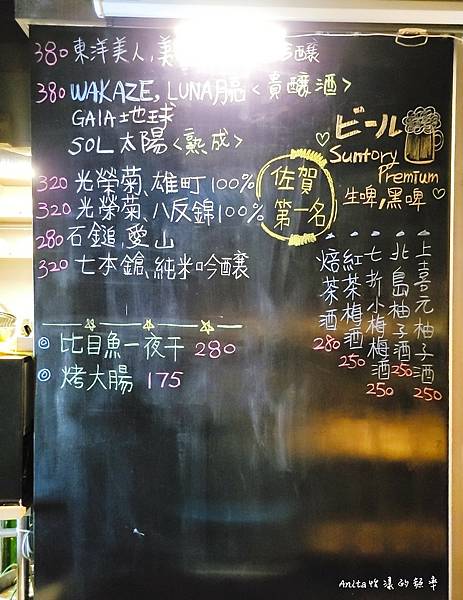 380 東洋美人,美 醸
380 WAKAZE, LUNA月 <貴醸酒>
GAIA地球
SOL太陽<熟成>
320 光榮菊、雄町100%
320 光榮菊、八反錦100%
280 石鎚,愛山
320 七本鎗、純米吟醸
佐賀
第一名
ビール
Suntory
Premium
生啤,黑啤
上喜元柚子酒 250
北島柚子酒 250
七折小梅梅酒 250
紅茶梅酒 250
焙茶酒 280
◎ 比目魚一夜干 280
◎ 烤大腸 175
Anita